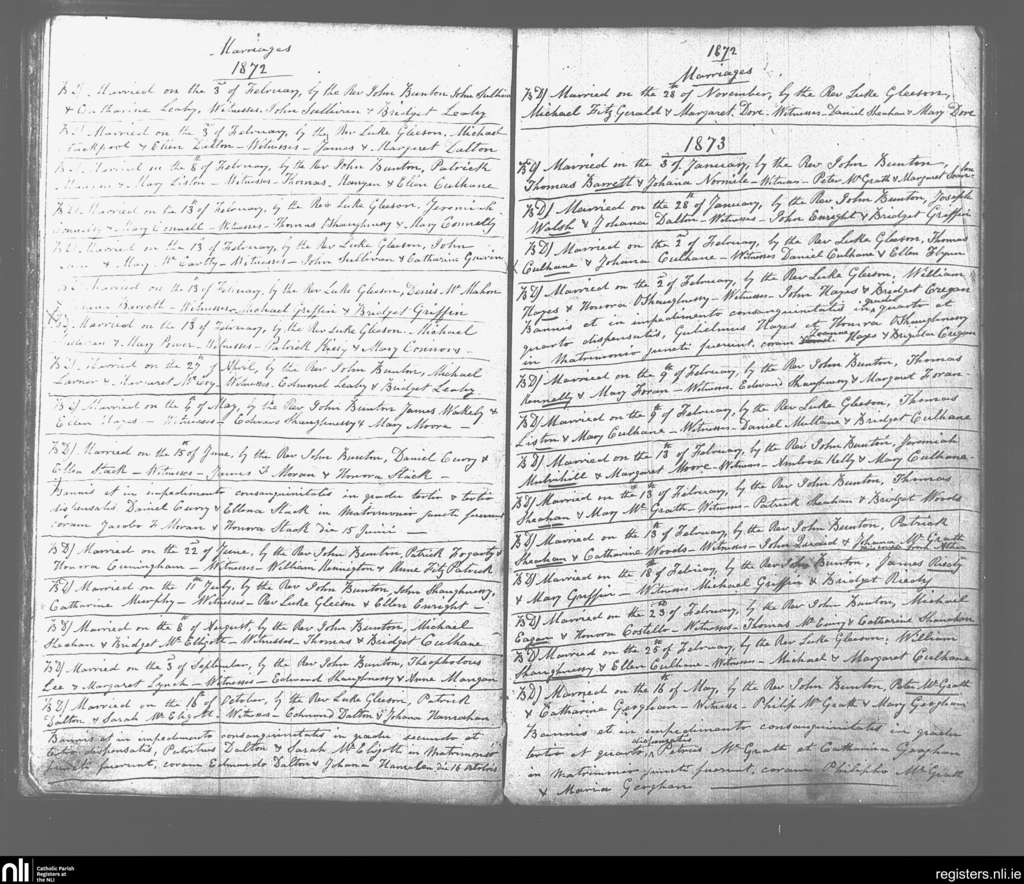 Marriages
1872
BD/. Married on the 3rd of February, by the Rev John Bunton John Sullivan
& Catharine Leahy, Witnesses. John Sullivan & Bridget Leahy
Married on the 3rd of February, by the Rev Luke Gleeson, Michael
& Ellen Dalton – Witnesses – James & Margaret Dalton
Married on the 8th of February, by the Rev John Bunton, Patrick
& Mary Liston – Witnesses – Thomas Hanzen & Ellen Culhane
BD/. Married on the 13th of February, by the Rev Luke Gleeson, Jeremiah
Connelly & Mary Connell – Witnesses – Thomas O'Shaughnessy & Mary Connelly
Married on the 13 of February, by the Rev Luke Gleeson, John
& Mary McCarthy – Witnesses – John Sullivan & Catharine
Married on the 13th of February, by the Rev Luke Gleeson, Denis McMahon
Barrett – Witnesses – Michael Griffin & Bridget Griffin
X BD/ Married on the 13 of February, by the Rev Luke Gleeson, Michael
Sullivan & Mary Power – Witnesses – Patrick & Mary Connors –
BD/. Married on the 27th of April, by the Rev John Bunton, Michael
& Margaret Witnesses – Edmund Leahy & Bridget Leahy
BD/ Married on the of May, by the Rev John Bunton James Wakely &
Ellen Hayes – Witnesses – Edward Shaughnessy & Mary Moore –
BD/ Married on the 15th of June, by the Rev John Bunton, Daniel Curry &
Ellen Stack – Witnesses – James F. Moran & Honora Stack –
Bannis et in impedimento consanguinitatis in gradu tertio & tertio
dispensatis Daniel Curry & Ellena Stack in Matrimonio juncti fuerunt
coram Jacobo F. Moran & Honora Stack die 15 Junii –
BD/ Married on the 22nd of June, by the Rev John Bunton, Patrick Fogarty &
Honora Cunningham – Witnesses – William & Anne Fitz Patrick
BD/ Married on the 11th July, by the Rev John Bunton, John Shaughnessy,
Catharine Murphy – Witnesses – Rev Luke Gleeson & Ellen Enright –
BD/ Married on the 8th of August, by the Rev John Bunton, Michael
Sheahan & Bridget McEligott – Witnesses – Thomas & Bridget Culhane
BD/ Married on the 3rd of September, by the Rev John Bunton, Theopholous
Lee & Margaret Lynch – Witnesses – Edward Shaughnessy & Anne Mangan
BD/ Married on the 16th of October, by the Rev Luke Gleeson, Patrick
Dalton & Sarah McEligott – Witness – Edmund Dalton & Johana Hanrahan
Bannis et in impedimento consanguinitatis in gradu secundo et
tertio dispensatis, Patritius Dalton & Sarah McEligott in Matrimonio
juncti fuerunt, coram Edmundo Dalton & Johana die 16 Octobris
1872
Marriages
BD/ Married on the 28th of November, by the Rev Luke Gleeson,
Michael Fitz Gerald & Margaret Dore. Witnesses – Daniel Sheahan & Mary Dore
1873
BD/ Married on the 3rd of January, by the Rev John Bunton –,
Thomas Barrett & Johana Normile – Witness – Peter McGrath & Margaret
BD/ Married on the 28th of January, by the Rev John Bunton, Joseph
Walsh & Johana Dalton – Witnesses – John Enright & Bridget Griffin
BD/ Married on the 2nd of February, by the Rev Luke Gleeson, Thomas
X Culhane & Johana Culhane – Witnesses Daniel Culhane & Ellen Flynn
BD/ Married on the 2nd of February, by the Rev Luke Gleeson, William
Hayes & Honora O'Shaughnessy – Witnesses – John Hayes & Bridget Cregan
Bannis et in impedimento consanguinitatis in gradu quarto et
quarto dispensatis, Gulielmus Hayes et Honora O'Shaughnessy
in Matrimonio juncti fuerunt, coram Joanne Hayes & Brigitta Cregan
BD/ Married on the 9th of February, by the Rev John Bunton, Thomas
Kennelly & Mary Horan – Witness – Edward Shaughnessy & Margaret Horan –
BD/ Married on the 9th of February, by the Rev Luke Gleeson, Thomas
Liston & Mary Culhane – Witness – Daniel Mullane & Bridget Culhane
BD/ Married on the 13th of February, by the Rev John Bunton, Jeremiah
Mulvihill & Margaret Moore – Witness – Ambrose Kelly & Mary Culhane –
BD/ Married on the 13th of February, by the Rev John Bunton, Thomas
Sheahan & Mary McGrath – Witness – Patrick Sheahan & Bridget Woods
BD/ Married on the 13th of February, by the Rev John Bunton, Patrick
Sheahan & Catharine Woods – Witnesses – John & Johana McGrath
BD/ Married on the 18th of February, by the Rev John Bunton, James Reidy
& Mary Griffin – Witness Michael Griffin & Bridget Reidy
BD/ Married on the 23rd of February, by the Rev John Bunton, Michael
Eagan & Honora Costello – Witness – Thomas McEvoy & Catharine Shanahan
BD/ Married on the 25th of February, by the Rev Luke Gleeson, William
Shaughnessy & Ellen Culhane – Witness – Michael & Margaret Culhane
BD/ Married on the 16th of May, by the Rev John Bunton, Peter McGrath
& Catharine Geoghean – Witness – Philip McGrath & Mary Geoghan
Bannis et in impedimento consanguinitatis in gradu
tertio et quarto dispensatis, Petrus McGrath et Catharina Geoghan
in Matrimonio juncti fuerunt, coram Philippo McGrath
& Maria Geoghan
nli
Catholic Parish
Registers at
the NLI
registers.nli.ie